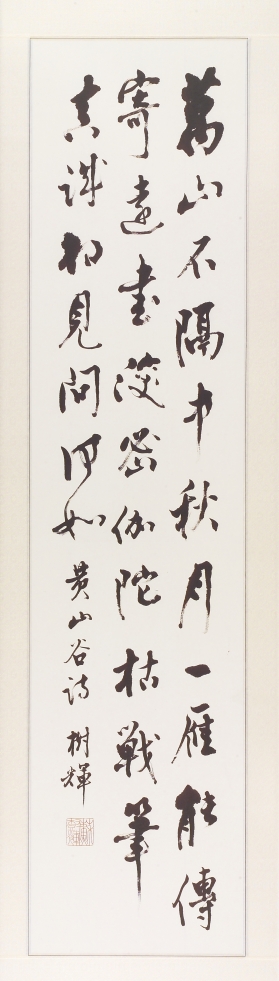 萬山不隔中秋月一雁能傳
寄遠書深密伽陀枯戰筆
真誠相見問何如 黃山谷詩 樹輝